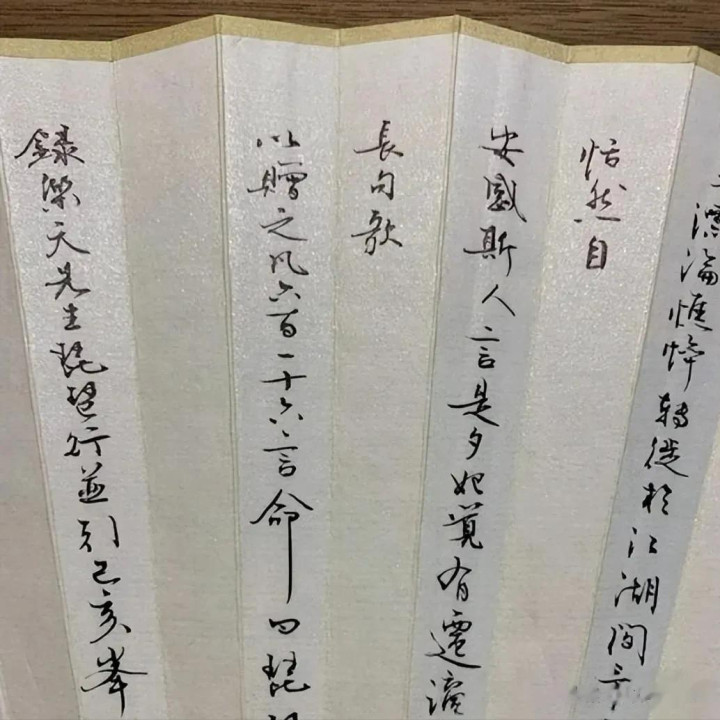 漂淪憔悴轉徙於江湖間予
恬然自
安感斯人言是夕始覺有遷謫
長句歌
以贈之凡六百一十六言命曰琵
錄樂天先生琵琶行並引己亥峯